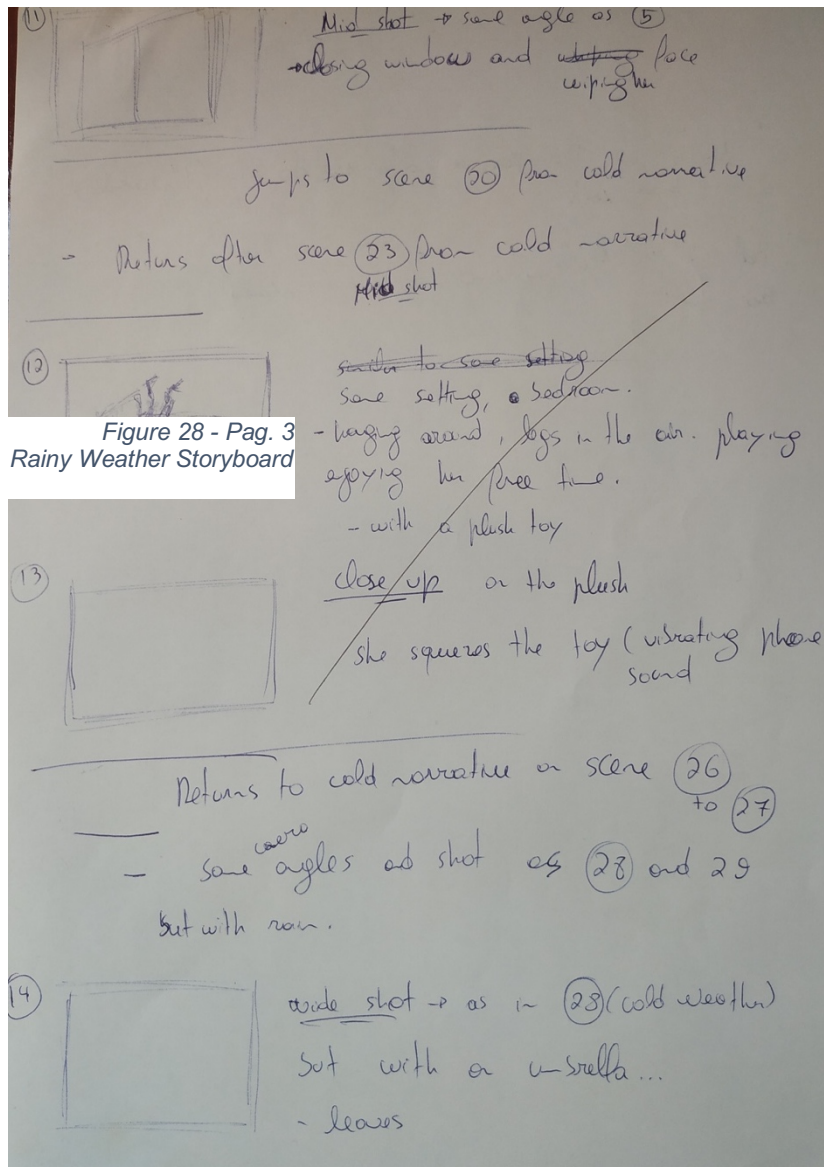 11
Mid shot → same angle as 5
→ closing windows and face
wiping her
Jumps to scene 20 from cold narrative
- Returns after scene 23 from cold narrative
Mid shot
12
similar to same setting
same setting, bedroom.
- hanging around, legs in the air. playing
enjoying her free time.
- with a plush toy
Figure 28 - Pag. 3
Rainy Weather Storyboard
13
close up on the plush
she squezes the toy (vibrating phone
sound
Returns to cold narrative on scene 26
to 27
- same angles and shot as 28 and 29
but with rain.
14
wide shot → as in 28 (cold weather)
but with an umbrella...
- leaves